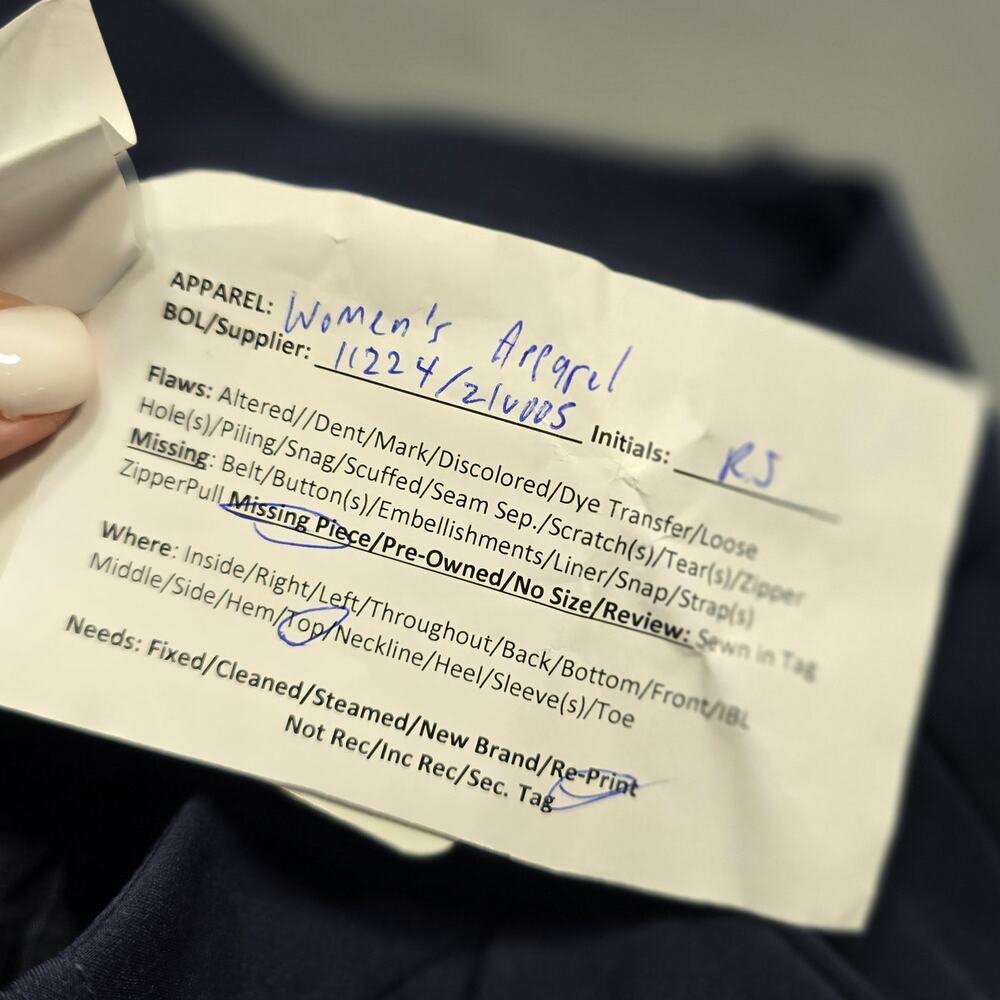 APPAREL: Women's Apparel
BOL/Supplier: 11224/210005 Initials: R.J
Flaws: Altered//Dent/Mark/Discolored/Dye Transfer/Loose
Hole(s)/Piling/Snag/Scuffed/Seam Sep./Scratch(s)/Tear(s)/Zipper
Missing: Belt/Button(s)/Embellishments/Liner/Snap/Strap(s)
ZipperPull Missing Piece/Pre-Owned/No Size/Review: Sewn in Tag
Where: Inside/Right/Left/Throughout/Back/Bottom/Front/IBL
Middle/Side/Hem/Top/Neckline/Heel/Sleeve(s)/Toe
Needs: Fixed/Cleaned/Steamed/New Brand/Re-Print
Not Rec/Inc Rec/Sec. Tag